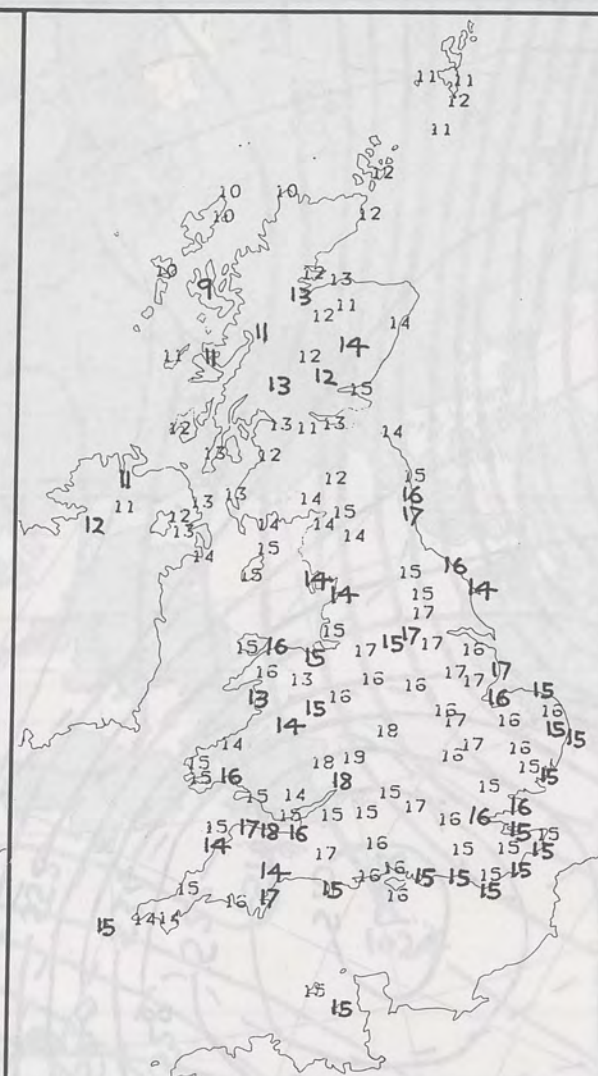 11 11
12
11
12
10 10
10 12
10 12 13
9 13
12 11
11 14
14
11 11 12
13 12 15
12 13 11 13 14
13 12
11 12 15
13 13 14 16
11 12 15 17
12 13 14 14
14 15 14
15 14 15 16
14 15 14
17
15 17
15 16 15 17 15 17 16
16 13 16 16 17 17 17
13 15 16 15
14 16 17 16 15
14 18 17 16 15
15 18 19 16 15
15 16 18 15 15
15 14 15 17 16
15 17 18 16 15 15 16 16 15 15
14 17 16 15 15 15
14 16 16 15 15 15
15 16 17 15 16 15
15 14 14
15
15